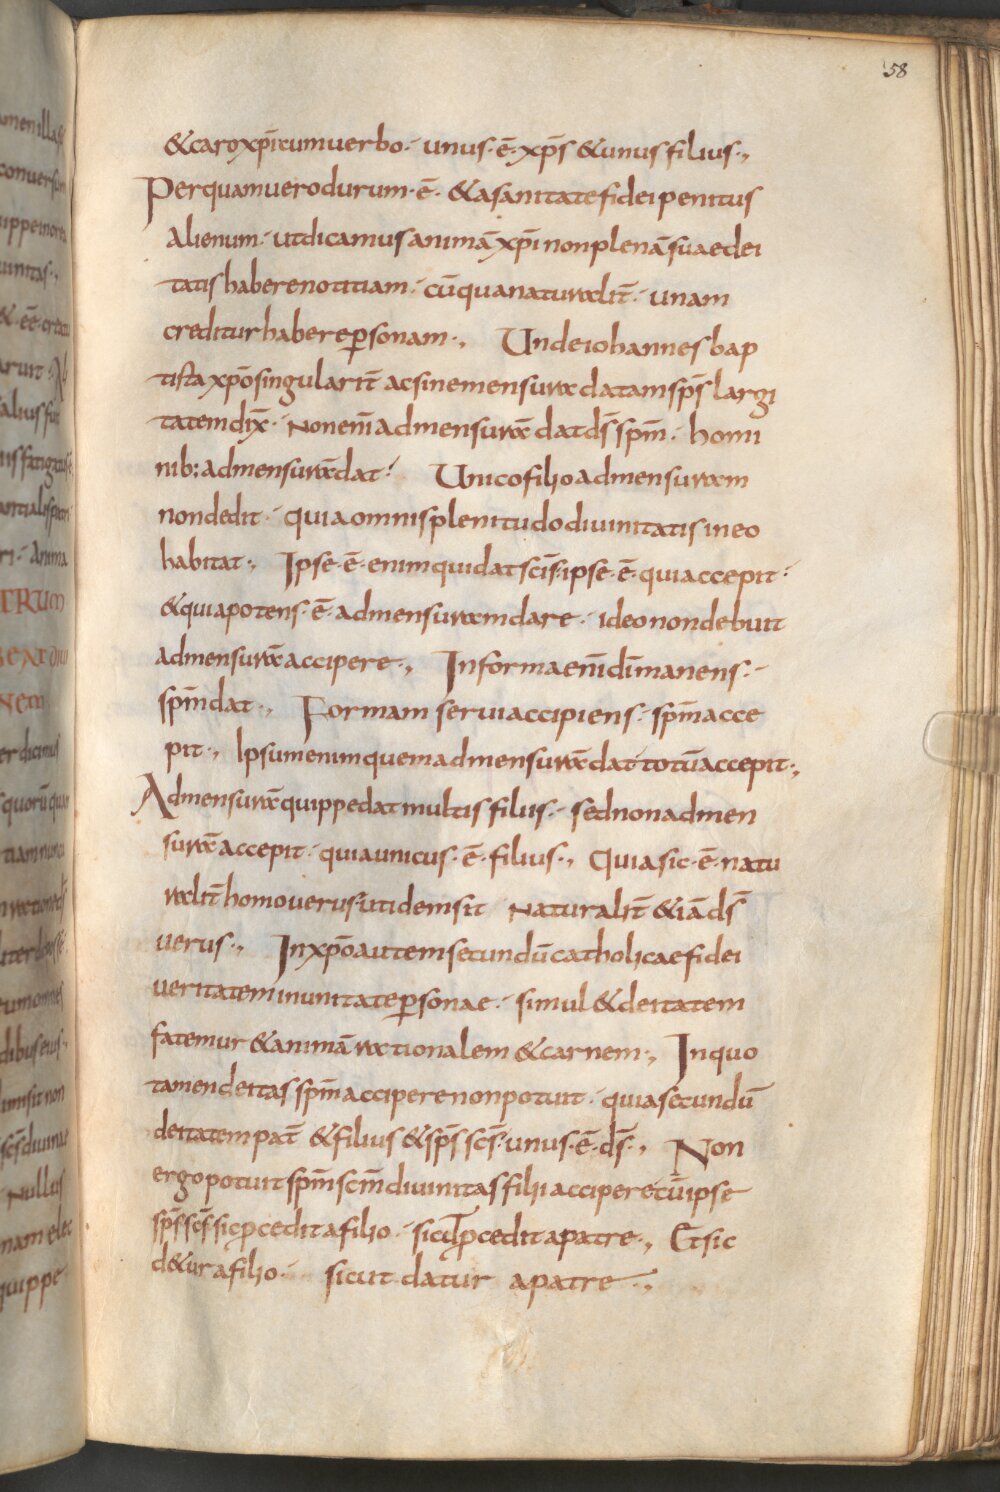 58
& caro xp̄i cum uerbo · unus · ē · xp̄s & unus filius ·,
Per quam uero durum · ē · & a sanitate fidei penitus
alienum · ut dicamus animā xp̄i non plenā suae dei
tatis habere notitiam · cū qua naturalit̄ · unam
creditur habere ꝑsonam ·, Unde iohannes bap
tista xp̄o singularit̄ ac sine mensura datam sp̄s largi
tatem dix̄ · Non eni̅ ad mensurā dat ds̄ sp̄m · homi
nib: ad mensurā dat · Unico filio ad mensuram
non dedit · quia omnis plenitudo diuinitatis in eo
habitat ·, Ipse · ē · enim qui dat sc̄is · ipse · ē · qui accepit ·
& quia potens · ē · ad mensuram dare · ideo non debuit
ad mensurā accipere ·, In forma eni̅ di̅ manens · 
sp̄m dat ·, Formam serui accipiens · sp̄m acce
pit ·, Ipsum enim quem ad mensurā dat totū accepit ·,
Ad mensurā quippe dat multis filiis · sed non ad men
surā accepit · quia unicus · ē · filius ·, Quia sic · ē · natu
ralit̄ homo uerus uti dem sit Naturalit̄ & iā ds̄
uerus ·, In xp̄o autem secundū catholicae fidei
ueritatem in unitate ꝑsonae · simul & deitatem
fatemur & animā rationalem & carnem ·, In quo
tamen deitas sp̄m accipere non potuit · quia secundū
deitatem pat̄ & filius & sp̄s sc̄s · unus · ē · ds̄ ·, Non
ergo potuit sp̄m sc̄m diuinitas filii accipere cū ipse
sp̄s sc̄s sic ꝓcedit a filio · sicut ꝓcedit a patre ·, Et sic
d&ur a filio · sicut datur a patre ·,